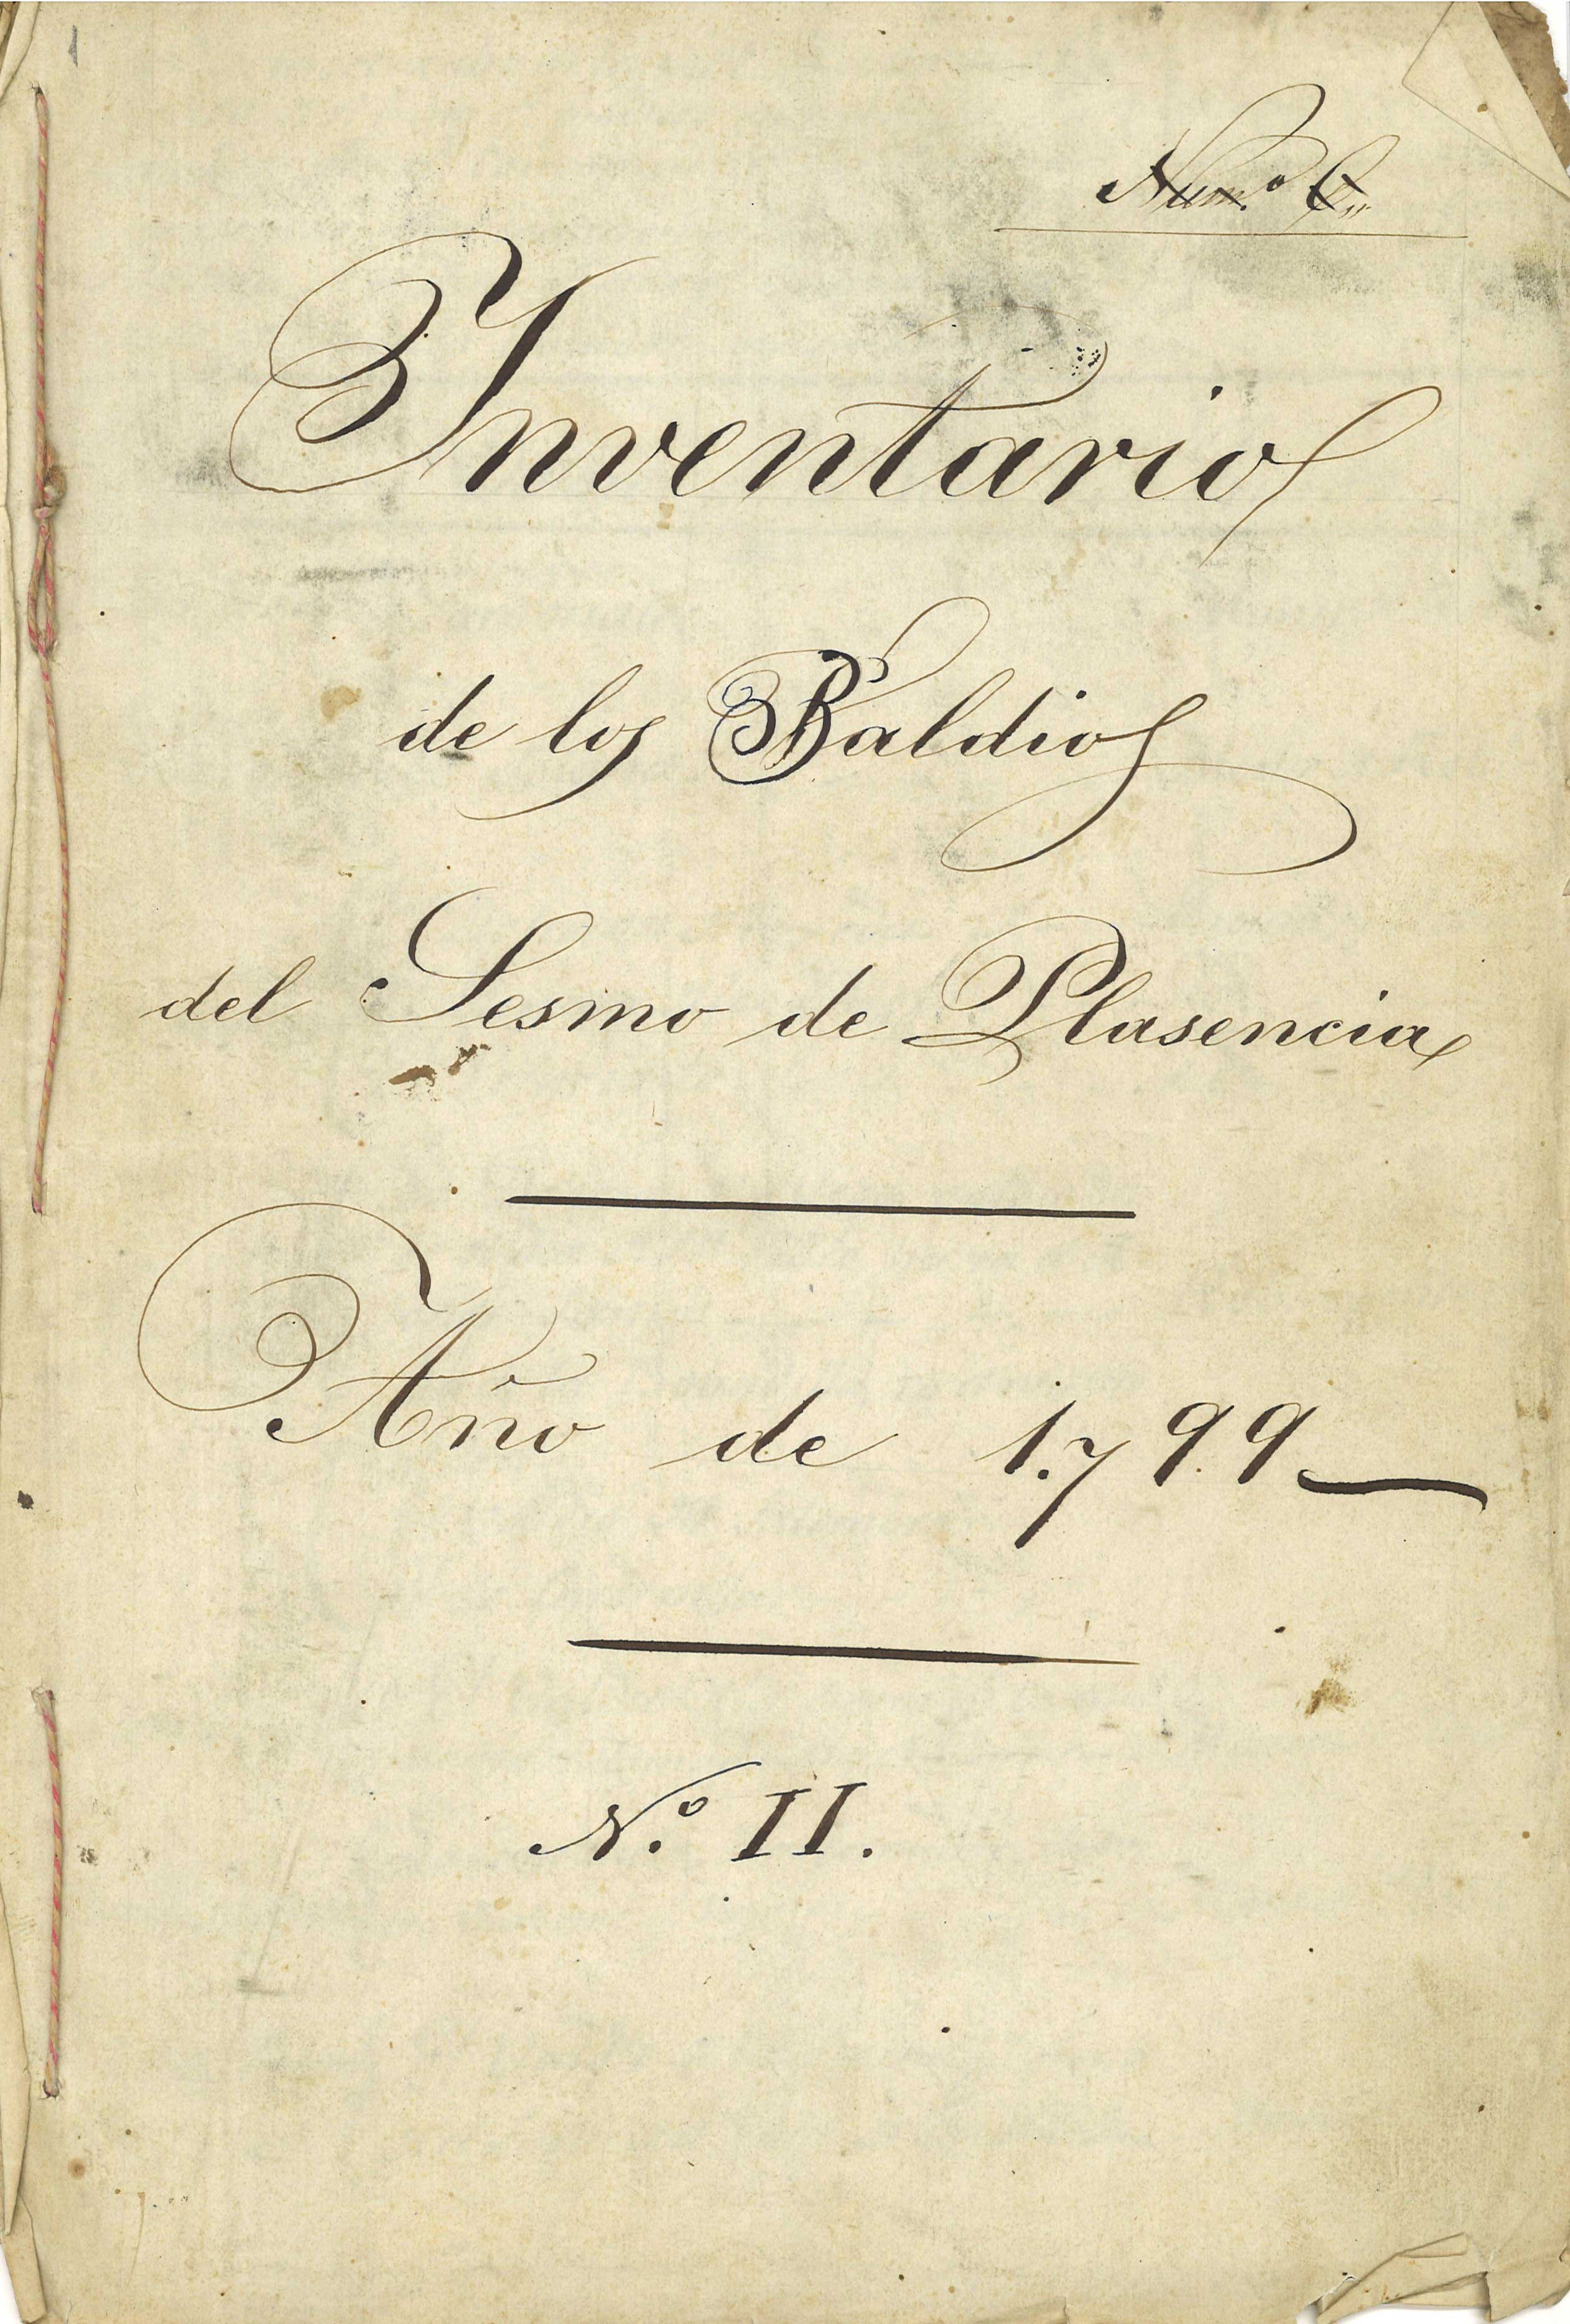 1
Num.º 6
Inventarios
de los Baldios
del Sesmo de Plasencia
Año de 1.799
N.º II.